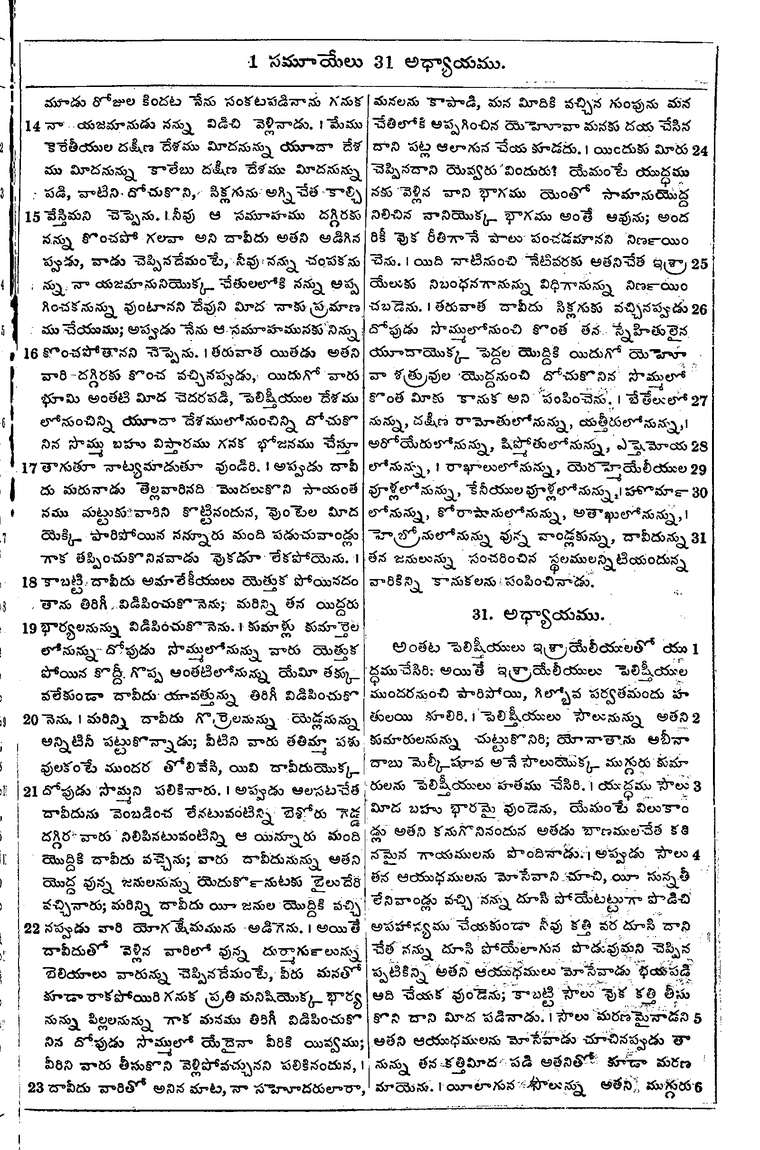 1 సమూయేలు 31 అధ్యాయము.
మూడు రోజుల కిందట నేను సంకటపడినాను గనుక
14 నా యజమానుడు నన్ను విడిచి వెళ్లినాడు. । మేము
కెరేతీయుల దక్షిణ దేశము మీదనున్ను యూదా దేశ
ము మీదనున్ను కాలేబు దక్షిణ దేశము మీదనున్ను
పడి, వాటిని దోచుకొని, సిక్లగును అగ్నిచేత కాల్చి
15 వేస్తిమని చెప్పెను. । నీవు ఆ సమూహము దగ్గిరకు
నన్ను కొంచపో గలవా అని దావీదు అతని అడిగిన
ప్పుడు, వాడు చెప్పినదేమంటే, నీవు నన్ను చంపకను
న్ను నా యజమానునియొక్క చేతులలోకి నన్ను అప్ప
గించకనున్ను వుంటానని దేవుని మీద నాకు ప్రమాణ
ము చేయుము; అప్పుడు నేను ఆ సమూహమునకు నిన్ను
16 కొంచపోతానని చెప్పెను. । తరువాత యితడు అతని
వారి దగ్గిరకు కొంచ వచ్చినప్పుడు, యిదుగో వారు
భూమి అంతటి మీద చెదరపడి, పెలిష్తీయుల దేశము
లోనుంచిన్ని యూదా దేశములోనుంచిన్ని దోచుకొ
నిన సొమ్ము బహు విస్తారము గనక భోజనము చేస్తూ
17 తాగుతూ నాట్యమాడుతూ వుండిరి. । అప్పుడు దావీ
దు మరునాడు తెల్లవారినది మొదలుకొని సాయంత
నము మట్టుకు వారిని కొట్టినందున, వుంటెల మీద
యెక్కి పారిపోయిన నన్నూరు మంది పడుచువాండ్లు
గాక తప్పించుకొనినవాడు వుకడూ లేకపోయెను. ।
18 కాబట్టి దావీదు అమాలేకీయులు యెత్తుక పోయినదం
తాను తిరిగీ విడిపించుకొనెను; మరిన్ని తన యిద్దరు
19 భార్యలనున్ను విడిపించుకొనెను. । కుమాళ్లు కుమార్తెల
లోనున్ను దోపుడు సొమ్ములోనున్ను వారు యెత్తుక
పోయిన కొద్దీ గొప్ప అంతటిలోనున్ను యేమీ తక్కు
వలేకుండా దావీదు యావత్తున్ను తిరిగీ విడిపించుకొ
20 నెను. । మరిన్ని దావీదు గొర్రెలనున్ను యెడ్లనున్ను
అన్నిటినీ పట్టుకొన్నాడు; వీటిని వారు తతిమ్మా పశు
వులకంటే ముందర తోలివేసి, యివి దావీదుయొక్క
21 దోపుడు సొమ్మని పలికినారు. । అప్పుడు ఆలసటచేత
దావీదును వెంబడించ లేనటువంటిన్ని బెశోరు గెడ్డ
దగ్గిర వారు నిలిపినటువంటిన్ని ఆ యిన్నూరు మంది
యొద్దికి దావీదు వచ్చెను; వారు దావీదునున్ను అతని
యొద్ద వున్న జనులనున్ను యెదుర్కొనుటకు బైలుదేరి
వచ్చినారు; మరిన్ని దావీదు యీ జనుల యొద్దికి వచ్చి
22 నప్పుడు వారి యోగక్షేమమును అడిగెను. । అయితే
దావీదుతో వెళ్లిన వారిలో వున్న దుర్మార్గులున్ను
బెలియాలు వారున్ను చెప్పినదేమంటే, వీరు మనతో
కూడా రాకపోయిరి గనుక ప్రతి మనిషియొక్క భార్య
నున్ను పిల్లలనున్ను గాక మనము తిరిగీ విడిపించుకొ
నిన దోపుడు సొమ్ములో యేదైనా వీరికి యివ్వము;
వీరిని వారు తీసుకొని వెళ్లిపోవచ్చునని పలికినందున, ।
23 దావీదు వారితో అనిన మాట, నా సహోదరులారా,
మనలను కాపాడి, మన మీదికి వచ్చిన గుంపును మన
చేతిలోకి అప్పగించిన యెహోవా మనకు దయ చేసిన
దాని పట్ల ఆలాగున చేయ కూడదు. । యిందుకు మీరు 24
చెప్పినదాని యెవ్వరు విందురు? యేమంటే యుద్ధము
నకు వెళ్లిన వాని భాగము యెంతో సామానుయొద్ద
నిలిచిన వానియొక్క భాగము అంతే ఆవును; అంద
రికీ వుక రీతిగానే పాలు పంచడమానని నిర్ణయిం
చెను. । యిది నాటినుంచి నేటివరకు అతనిచేత ఇశ్రా 25
యేలుకు నిబంధనగానున్ను విధిగానున్ను నిర్ణయిం
చబడెను. । తరువాత దావీదు సిక్లగుకు వచ్చినప్పుడు 26
దోపుడు సొమ్ములోనుంచి కొంత తన స్నేహితులైన
యూదాయొక్క పెద్దల యొద్దికి యిదుగో యెహో
వా శత్రువుల యొద్దనుంచి దోచుకొనిన సొమ్ములో
కొంత మీకు కానుక అని పంపించెను. । బేతేలులో 27
నున్ను, దక్షిణ రామోతులోనున్ను, యత్తీరులోనున్ను,।
అరోయేరులోనున్ను, షిప్మోతులోనున్ను, ఎష్తెమోయ 28
లోనున్ను, । రాఖాలులోనున్ను, యెరహ్మెయేలీయుల 29
వూళ్లలోనున్ను, కేనీయులవూళ్లలోనున్ను,। హొర్మా 30
లోనున్ను, కోరాషానులోనున్ను, అతాఖులోనున్ను,।
హెబ్రోనులోనున్ను వున్న వాండ్లకున్ను, దావీదున్ను 31
తన జనులున్ను సంచరించిన స్థలములన్నిటియందున్న
వారికిన్ని కానుకలను పంపించినాడు.
31. అధ్యాయము.
అంతట పెలిష్తీయులు ఇశ్రాయేలీయులతో యు 1
ద్ధముచేసిరి: అయితే ఇశ్రాయేలీయులు పెలిష్తీయుల
ముందరనుంచి పారిపోయి, గిల్బోవ పర్వతమందు హ
తులయి కూలిరి. । పెలిష్తీయులు సౌలునున్ను అతని 2
కుమారులనున్ను చుట్టుకొనిరి; యోనాతాను అబీనా
దాబు మెల్కీషూవ అనే సౌలుయొక్క ముగ్గురు కుమా
రులను పెలిష్తీయులు హతము చేసిరి. । యుద్ధము సౌలు 3
మీద బహు భారమై వుండెను, యేమంటే విలుకాం
డ్లు అతని కనుగొనినందున అతడు బాణములచేత కఠి
నమైన గాయములను పొందినాడు. । అప్పుడు సౌలు 4
తన ఆయుధములను మోసేవాని చూచి, యీ సున్నతి
లేనివాండ్లు వచ్చి నన్ను దూసి పోయేటట్టుగా పొడిచి
అపహాస్యము చేయకుండా నీవు కత్తి వర దూసి దాని
చేత నన్ను దూసి పోయేలాగున పొడువుమని చెప్పిన
ప్పటికిన్ని అతని ఆయుధములు మోసేవాడు భయపడి
అది చేయక వుండెను; కాబట్టి సౌలు వుక కత్తి తీసు
కొని దాని మీద పడినాడు. । సౌలు మరణమైనాడని 5
అతని ఆయుధములను మోసేవాడు చూచినప్పుడు తా
నున్ను తన కత్తిమీద పడి అతనితో కూడా మరణ
మాయెను. । యీలాగున సౌలున్ను అతని ముగ్గురు 6